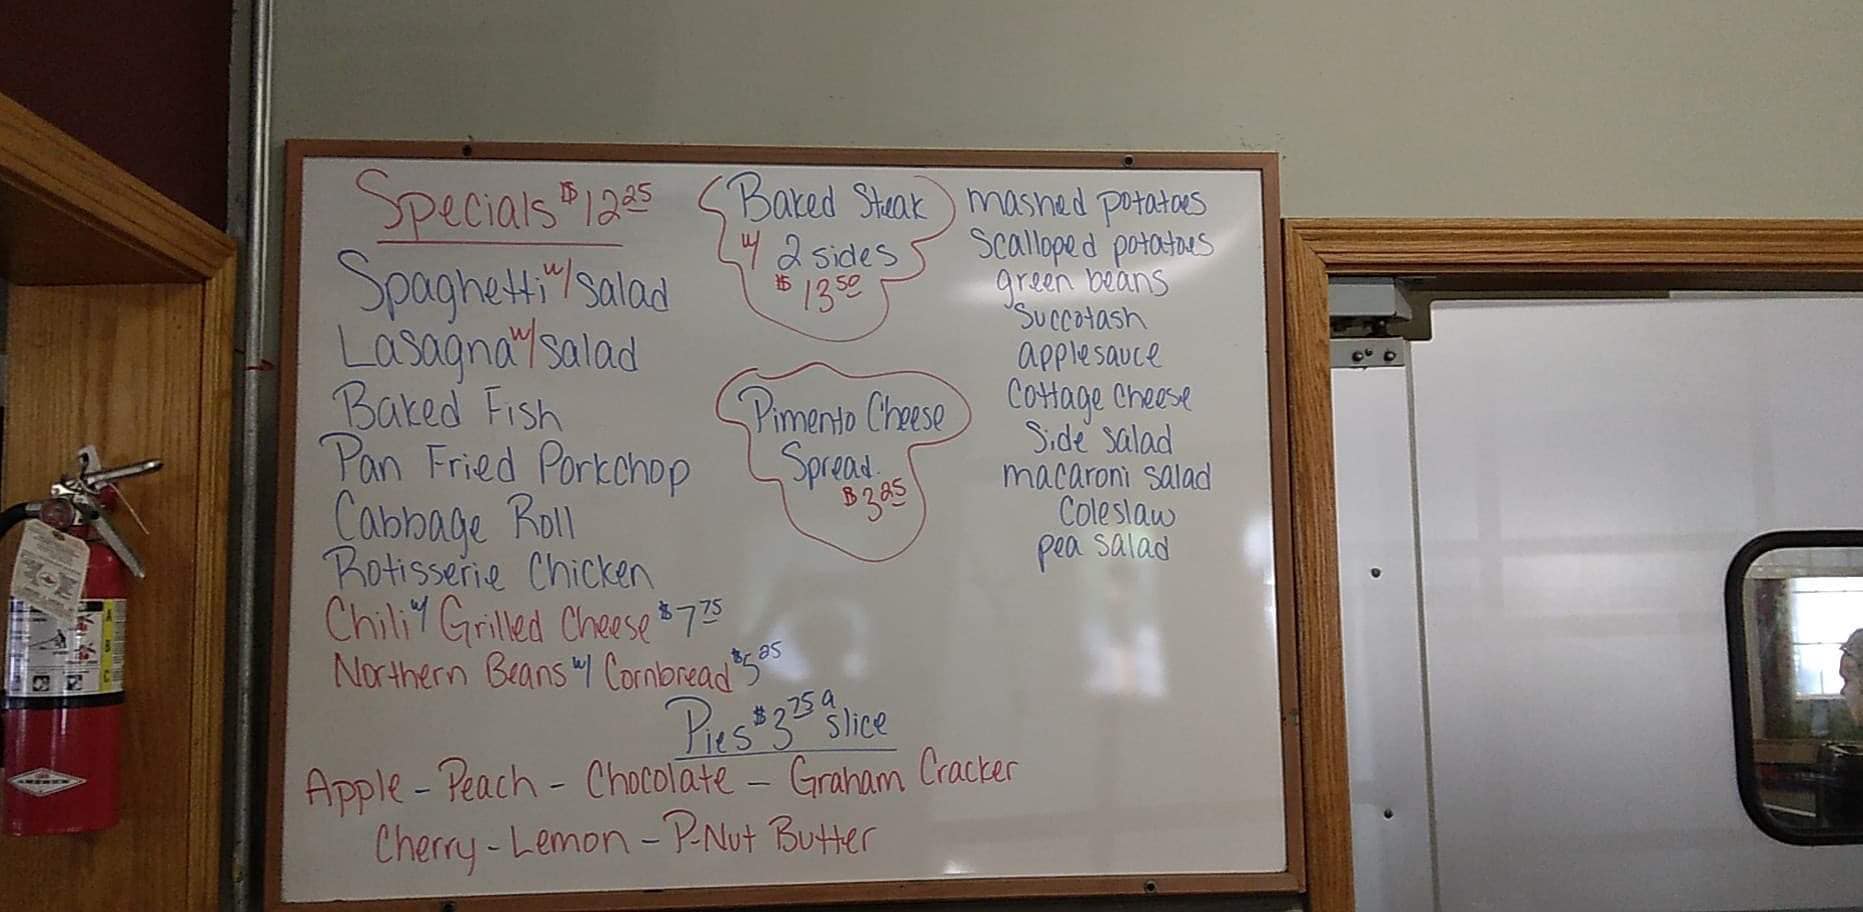 Specials $12.25
Spaghetti w/ Salad
Lasagna w/ Salad
Baked Fish
Pan Fried Porkchop
Cabbage Roll
Rotisserie Chicken
Chili w/ Grilled Cheese $7.75
Northern Beans w/ Cornbread $5.25
Baked Steak
w/ 2 sides
$13.50
Pimento Cheese
Spread
$3.25
mashed potatoes
Scalloped potatoes
green beans
Succotash
applesauce
Cottage Cheese
Side Salad
macaroni Salad
Coleslaw
pea Salad
Pies $3.75 a slice
Apple - Peach - Chocolate - Graham Cracker
Cherry - Lemon - P-Nut Butter
A
B
C